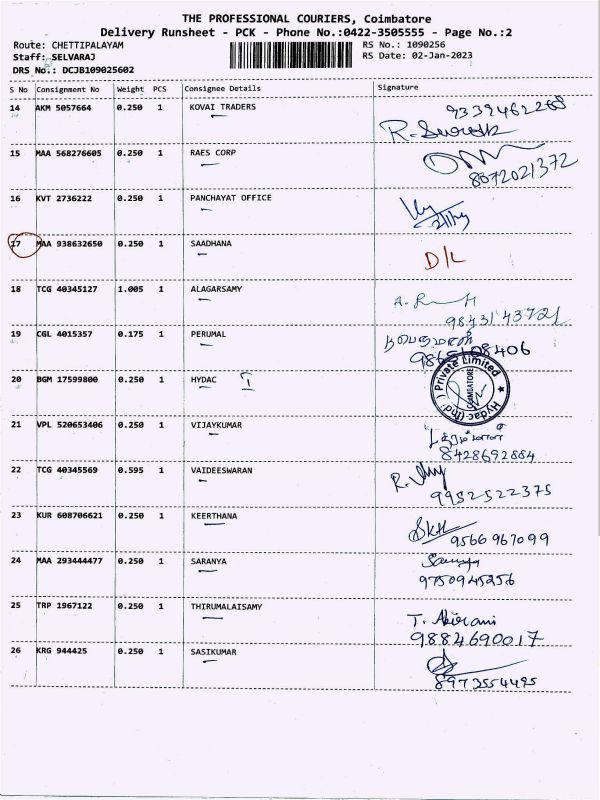 THE PROFESSIONAL COURIERS, Coimbatore
Delivery Runsheet - PCK - Phone No.:0422-3505555 - Page No.:2
Route: CHETTIPALAYAM RS No.: 1090256
Staff: SELVARAJ RS Date: 02-Jan-2023
DRS No.: DCJB109025602
S No Consignment No Weight PCS Consignee Details Signature
14 AKM 5057664 0.250 1 KOVAI TRADERS 9339462268
R. Suresh
15 MAA 568276605 0.250 1 RAES CORP
8072021372
16 KVT 2736222 0.250 1 PANCHAYAT OFFICE
17 MAA 938632650 0.250 1 SAADHANA D/L
18 TCG 40345127 1.005 1 ALAGARSAMY
9843143721
19 CGL 4015357 0.175 1 PERUMAL
20 BGM 17599800 0.250 1 HYDAC I
Hydac (Ind) Private Limited
COIMBATORE
21 VPL 520653406 0.250 1 VIJAYKUMAR
8428692884
22 TCG 40345569 0.595 1 VAIDEESWARAN
9952522375
23 KUR 608706621 0.250 1 KEERTHANA
9566967099
24 MAA 293444477 0.250 1 SARANYA
9750945256
25 TRP 1967122 0.250 1 THIRUMALAISAMY T. Abirami
9884690017
26 KRG 944425 0.250 1 SASIKUMAR
8973554495